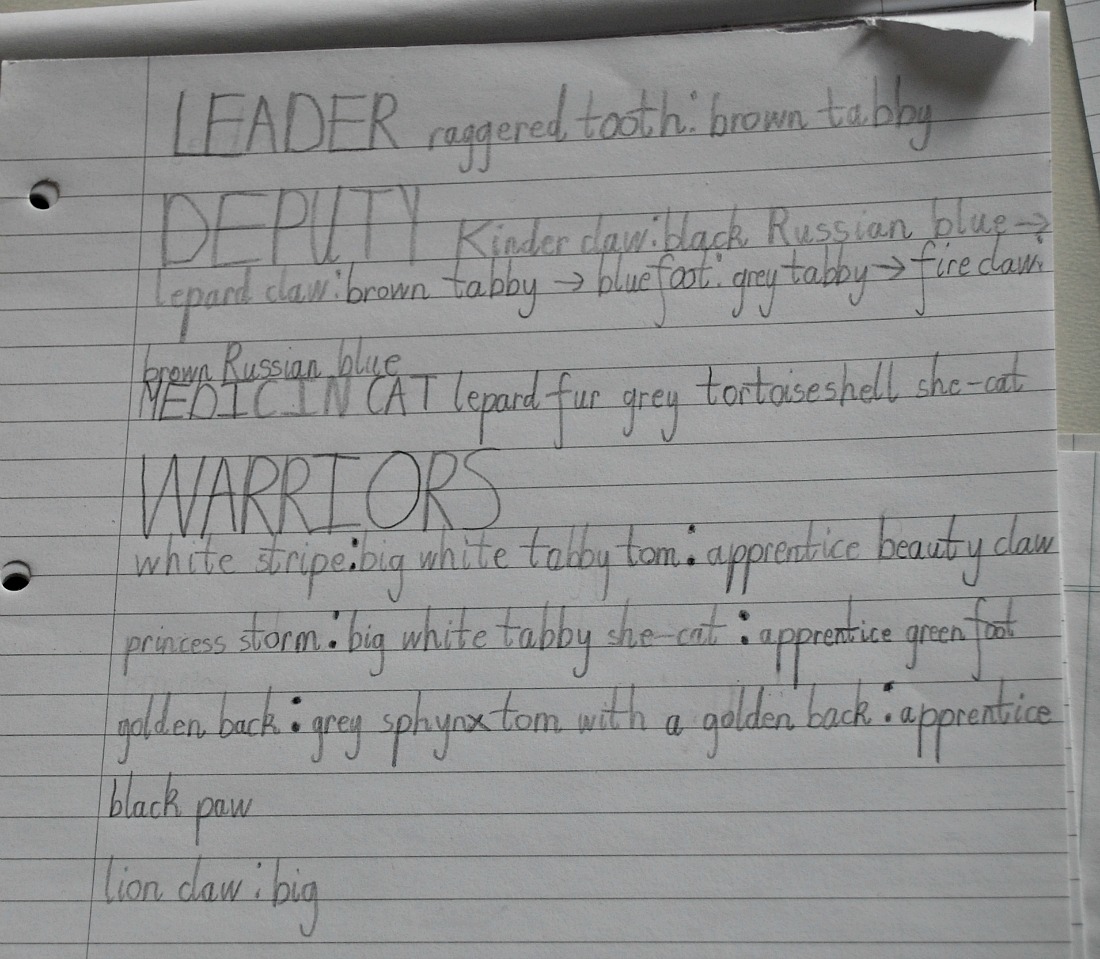 LEADER raggered tooth: brown tabby
DEPUTY Kinder claw: black Russian blue →
lepard claw: brown tabby → blue foot: grey tabby → fire claw:
brown Russian blue
MEDICIN CAT lepard fur grey tortoiseshell she-cat
WARRIORS
white stripe: big white tabby tom: apprentice beauty claw
princess storm: big white tabby she-cat: apprentice green foot
golden back: grey sphynx tom with a golden back: apprentice
black paw
lion claw: big